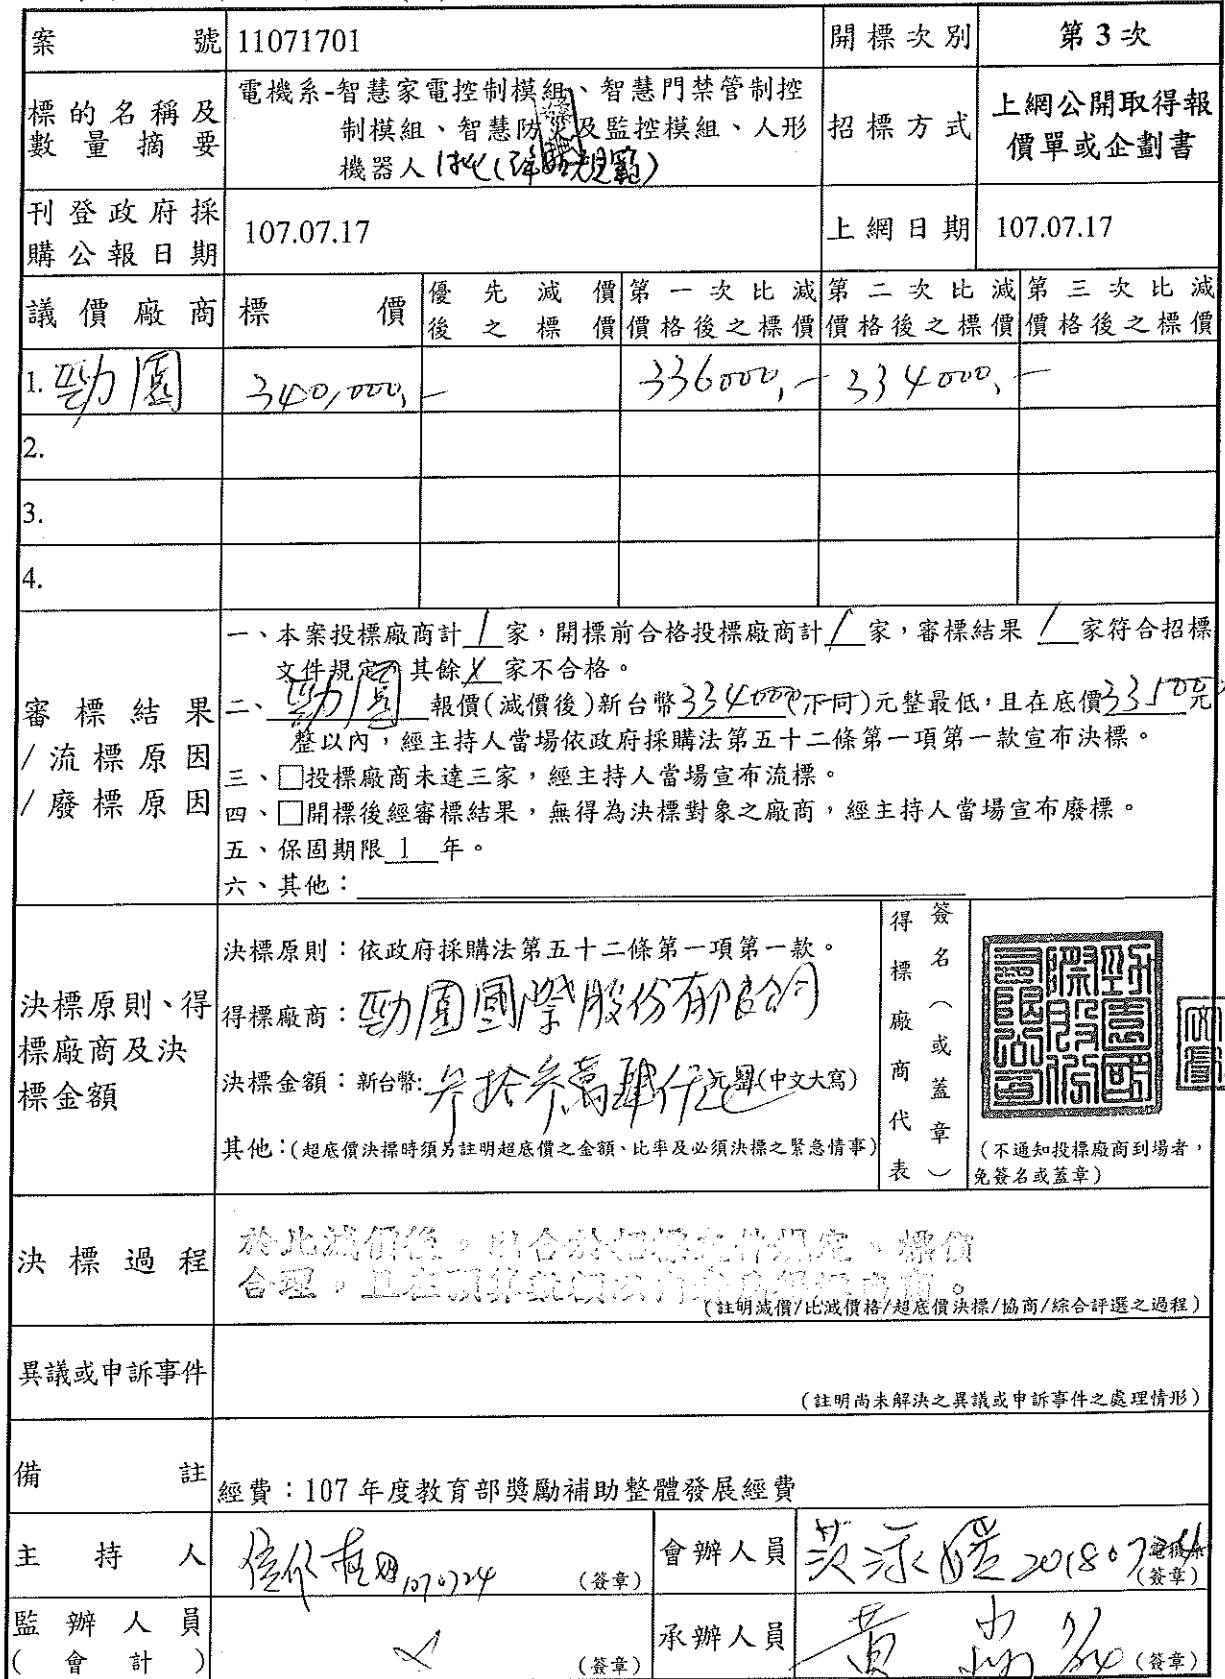 案號 11071701 開標次別 第3次
標的名稱及數量摘要 電機系-智慧家電控制模組、智慧門禁管制控
制模組、智慧防災及監控模組、人形
機器人1批(詳如規範)
招標方式 上網公開取得報
價單或企劃書
刊登政府採購公報日期 107.07.17 上網日期 107.07.17
議價廠商 標價 優先減價後之標價 第一次比減價格後之標價 第二次比減價格後之標價 第三次比減價格後之標價
1. 勁園 340,000,- 336000,- 334000,-
2.
3.
4.
審標結果
/流標原因
/廢標原因
一、本案投標廠商計 1 家,開標前合格投標廠商計 1 家,審標結果 1 家符合招標
文件規定,其餘 家不合格。
二、勁園 報價(減價後)新台幣334000(不同)元整最低,且在底價 元
整以內,經主持人當場依政府採購法第五十二條第一項第一款宣布決標。
三、□投標廠商未達三家,經主持人當場宣布流標。
四、□開標後經審標結果,無得為決標對象之廠商,經主持人當場宣布廢標。
五、保固期限 1 年。
六、其他:
決標原則、得
標廠商及決
標金額
決標原則:依政府採購法第五十二條第一項第一款。
得標廠商:勁園國際股份有限公司
決標金額:新台幣:參拾參萬肆仟元整(中文大寫)
其他:(超底價決標時須另註明超底價之金額、比率及必須決標之緊急情事)
得標廠商代表
簽名(或蓋章)
(不通知投標廠商到場者,
免簽名或蓋章)
決標過程
於比減價後。以合於招標文件規定、標價
合理。且在預算數額以內
(註明減價/比減價格/超底價決標/協商/綜合評選之過程)
異議或申訴事件
(註明尚未解決之異議或申訴事件之處理情形)
備註 經費:107年度教育部獎勵補助整體發展經費
主持人 1070724 (簽章) 會辦人員 (簽章)
監辦人員
(會計) (簽章) 承辦人員 黃 (簽章)